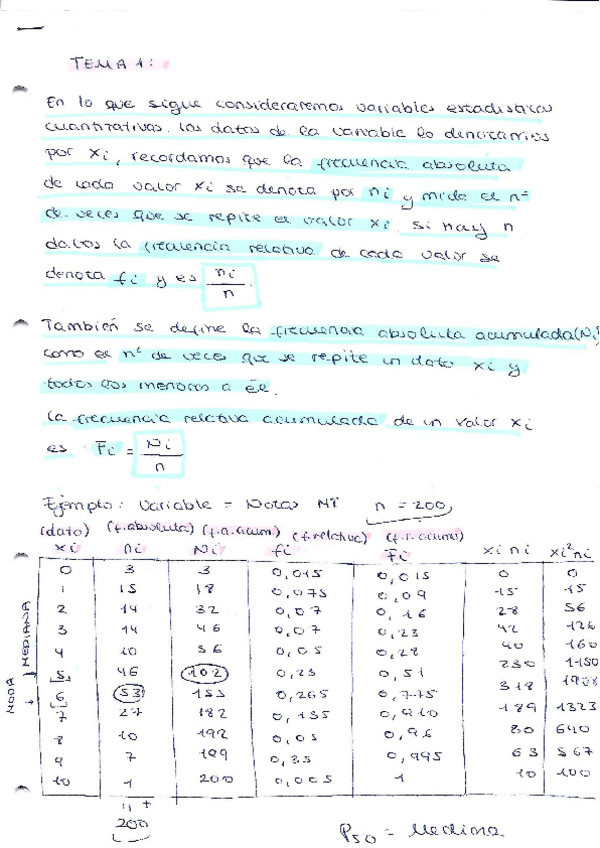 TEMA 1:
En lo que sigue consideraremos variables estadísticas
cuantitativas. Los datos de la variable lo denotamos
por xi, recordamos que la frecuencia absoluta
de cada valor xi se denota por ni y mide el nº
de veces que se repite el valor xi. si hay n
datos la frecuencia relativa de cada valor se
denota fi y es ni/n.
También se define la frecuencia absoluta acumulada (Ni)
como el nº de veces que se repite un dato xi y
todos los menores a él.
La frecuencia relativa acumulada de un valor xi
es Fi = Ni/n
Ejemplo: Variable = Notas MT n = 200
(dato) (f.absoluta) (f.a.acum) (f.relativa) (f.r.acum)
xi ni Ni fi Fi xi ni xi²ni
0 3 3 0,015 0,015 0 0
1 15 18 0,075 0,09 15 15
2 14 32 0,07 0,16 28 56
3 14 46 0,07 0,23 42 126
4 10 56 0,05 0,28 40 160
5 46 102 0,23 0,51 230 1150
6 53 155 0,265 0,775 318 1908
7 27 182 0,135 0,910 189 1323
8 10 192 0,05 0,96 80 640
9 7 199 0,35 0,995 63 567
10 1 200 0,005 1 10 100
MEDIANA
MODA
11 +
200
P50 = Mediana